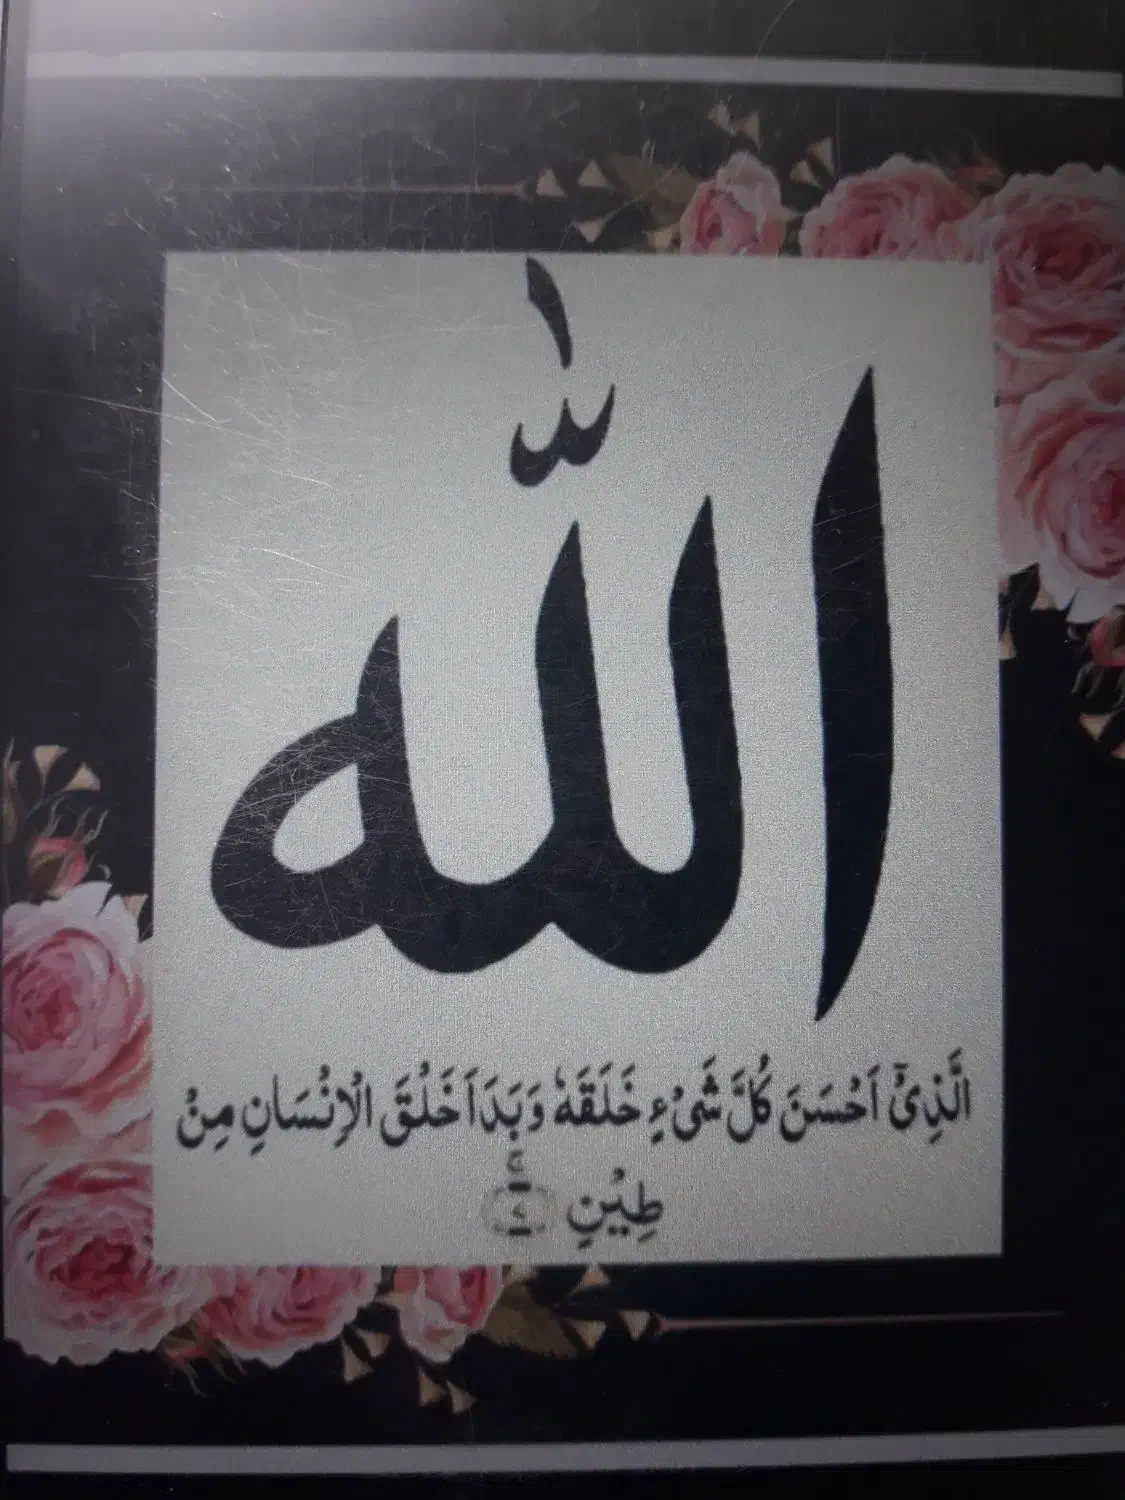 الله
الَّذِىْۤ اَحْسَنَ كُلَّ شَىْءٍ خَلَقَهٗ وَبَدَاَ خَلْقَ الْاِنْسَانِ مِنْ
طِيْنٍ